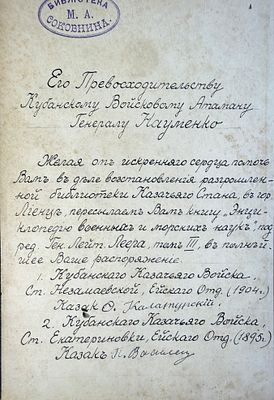 БИБЛИОТЕКА
М. А.
СОКОВНИНА.
Его Превосходительству
Кубанскому Войсковому Атаману
Генералу Науменко
Желая отъ искренняго сердца помочь
Вамъ, въ дѣлѣ возстановленія разгромлен-
ной библіотеки Казачьяго Стана, въ гор.
Ліенцъ, пересылаемъ Вамъ книгу, Энци-
клопедію военныхъ и морскихъ наукъ, подъ
ред. Ген. Лейт. Леера, томъ III, въ полнѣй-
шее Ваше распоряженіе.
1. Кубанскаго Казачьяго Войска,
Ст. Незамаевской, Ейскаго Отд. (1904г.)
Казакъ Ѳ.
2. Кубанскаго Казачьяго Войска,
Ст. Екатериновки, Ейскаго Отд. (1895г.)
Казакъ